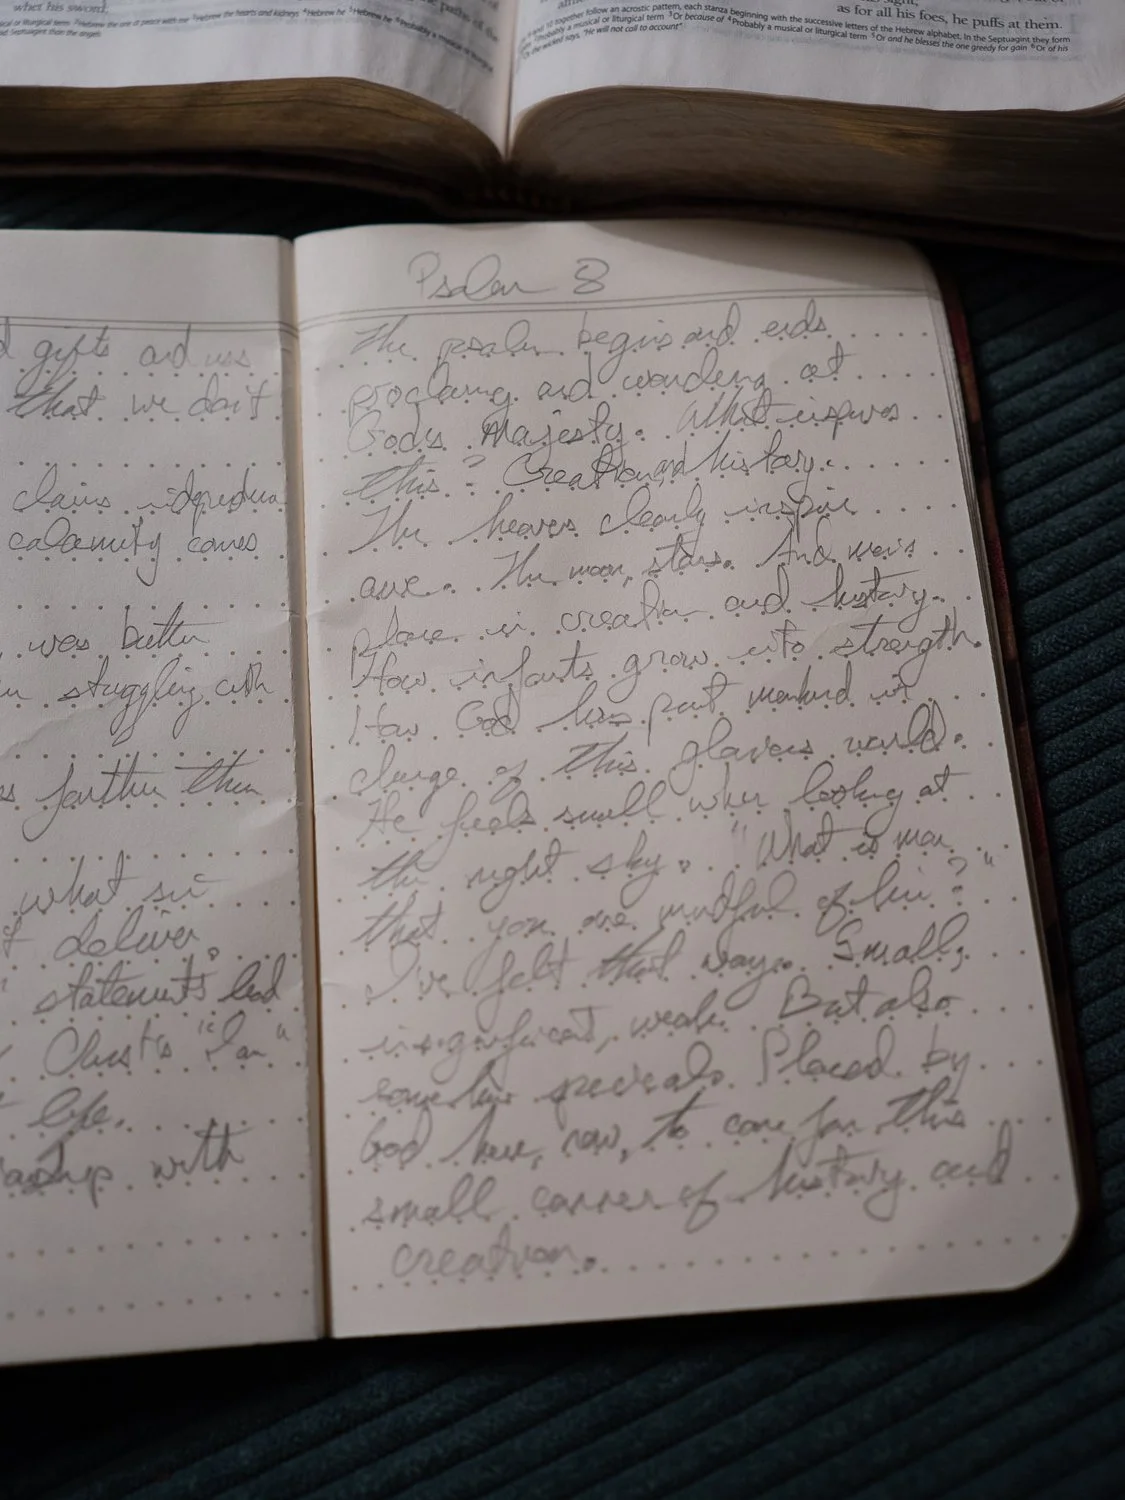 whet his sword;
al or liturgical term 2Hebrew the one at peace with me 3Hebrew the hearts and kidneys 4Hebrew he 5Hebrew he 6Probably a musical or
Septuagint than the angels
as for all his foes, he puffs at them.
and 10 together follow an acrostic pattern, each stanza beginning with the successive letters of the Hebrew alphabet. In the Septuagint they form
2Probably a musical or liturgical term 3Or because of 4Probably a musical or liturgical term 5Or and he blesses the one greedy for gain 6Or of his
Or the wicked says, "He will not call to account"
gifts and us
that we don't
claims
calamity comes
was better
struggling with
farther than
what sin
deliver.
statements lead
Christ's "I am"
life.
with
Psalm 8
The psalm begins and ends
proclaiming and wondering at
God's Majesty. What inspires
this? Creation and history.
The heavens clearly inspire
awe. The moon, stars. And man's
place in creation and history.
How infants grow into strength.
How God has put mankind in
charge of this glorious world.
He feels small when looking at
the night sky. "What is man
that you are mindful of him?"
I've felt that way. Small,
insignificant, weak. But also
somehow special. Placed by
God here, now, to care for this
small corner of history and
creation.